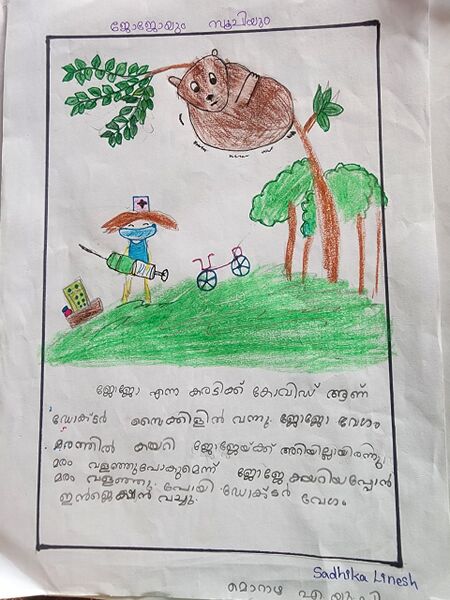 ജോജോയും സൂചിയും
ജോജോ എന്ന കരടിക്ക് കോവിഡ് ആണ്
ഡോക്ടർ സൈക്കിളിൻ വന്നു. ജോജോ വേഗം
മരത്തിൽ കയറി ജോജോയ്ക്ക് അറിയില്ലായിരുന്നു.
മരം വളഞ്ഞുപോകുമെന്ന് ജോജോ കയറിയപ്പോൻ
മരം വളഞ്ഞു. പോയി ഡോക്ടർ വേഗം
ഇൻജെക്ഷൻ വച്ചു.
Sadhika Linesh
എ യു പി